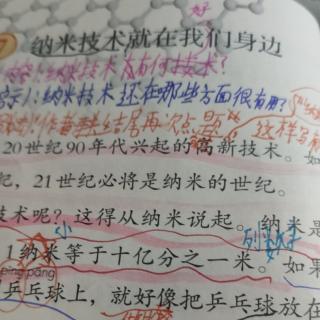 好
7 纳米技术就在我们身边
内容1:纳米技术有何技术?
启示1:纳米技术还在哪些方面很有用?
结尾再次点题
这样写有
20世纪90年代兴起的高新技术。如
纪,21世纪必将是纳米的世纪。
技术呢?这得从纳米说起。纳米是
小
列数字
1纳米等于十亿分之一米。如果
pīng pāng
乒乓球上,就好像把乒乓球放在